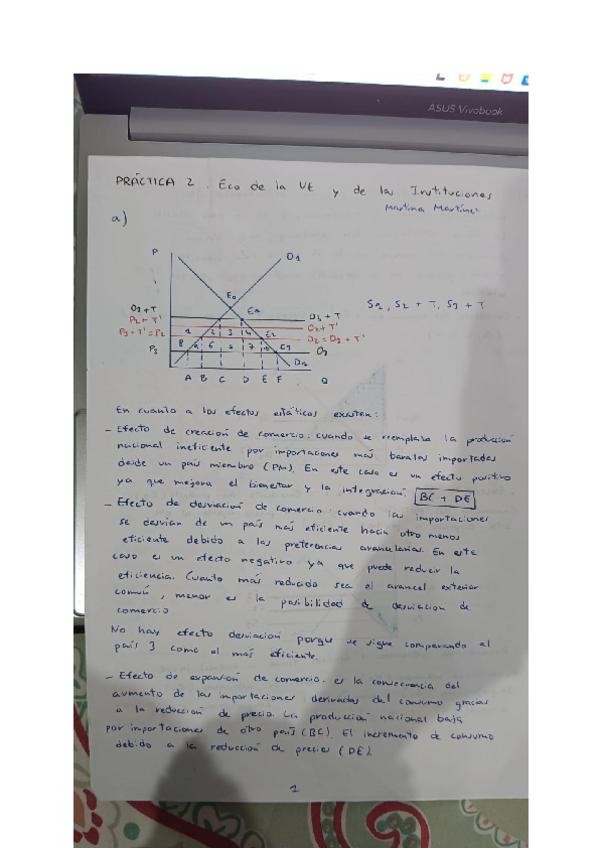 ASUS Vivobook
PRÁCTICA 2. Eco de la UE y de las Instituciones
Martina Martínez
a)
P
O1
E0
Ea
S2, S2 + T, S3 + T
O3 + T
P2 + T'
P3 + T' = P2
P3
O3 + T
O2 + T'
O2 = O3 + T'
O3
1 2 3 4 E2
8 9 6 7 E3
D
A B C D E F Q
En cuanto a los efectos estáticos existen:
- Efecto de creación de comercio: cuando se reemplaza la producción
nacional ineficiente por importaciones más baratas importadas
desde un país miembro (PM). En este caso es un efecto positivo
ya que mejora el bienestar y la integración BC + DE
- Efecto de desviación de comercio: cuando las importaciones
se desvían de un país más eficiente hacia otro menos
eficiente debido a las preferencias arancelarias. En este
caso es un efecto negativo ya que puede reducir la
eficiencia. Cuanto más reducido sea el arancel exterior
común, menor es la posibilidad de desviación de
comercio
No hay efecto desviación porque se sigue comprando al
país 3 como el más eficiente.
- Efecto de expansión de comercio: es la consecuencia del
aumento de las importaciones derivadas del consumo gracias
a la reducción de precio. La producción nacional baja
por importaciones de otro país (BC). El incremento de consumo
debido a la reducción de precios (DE).
1